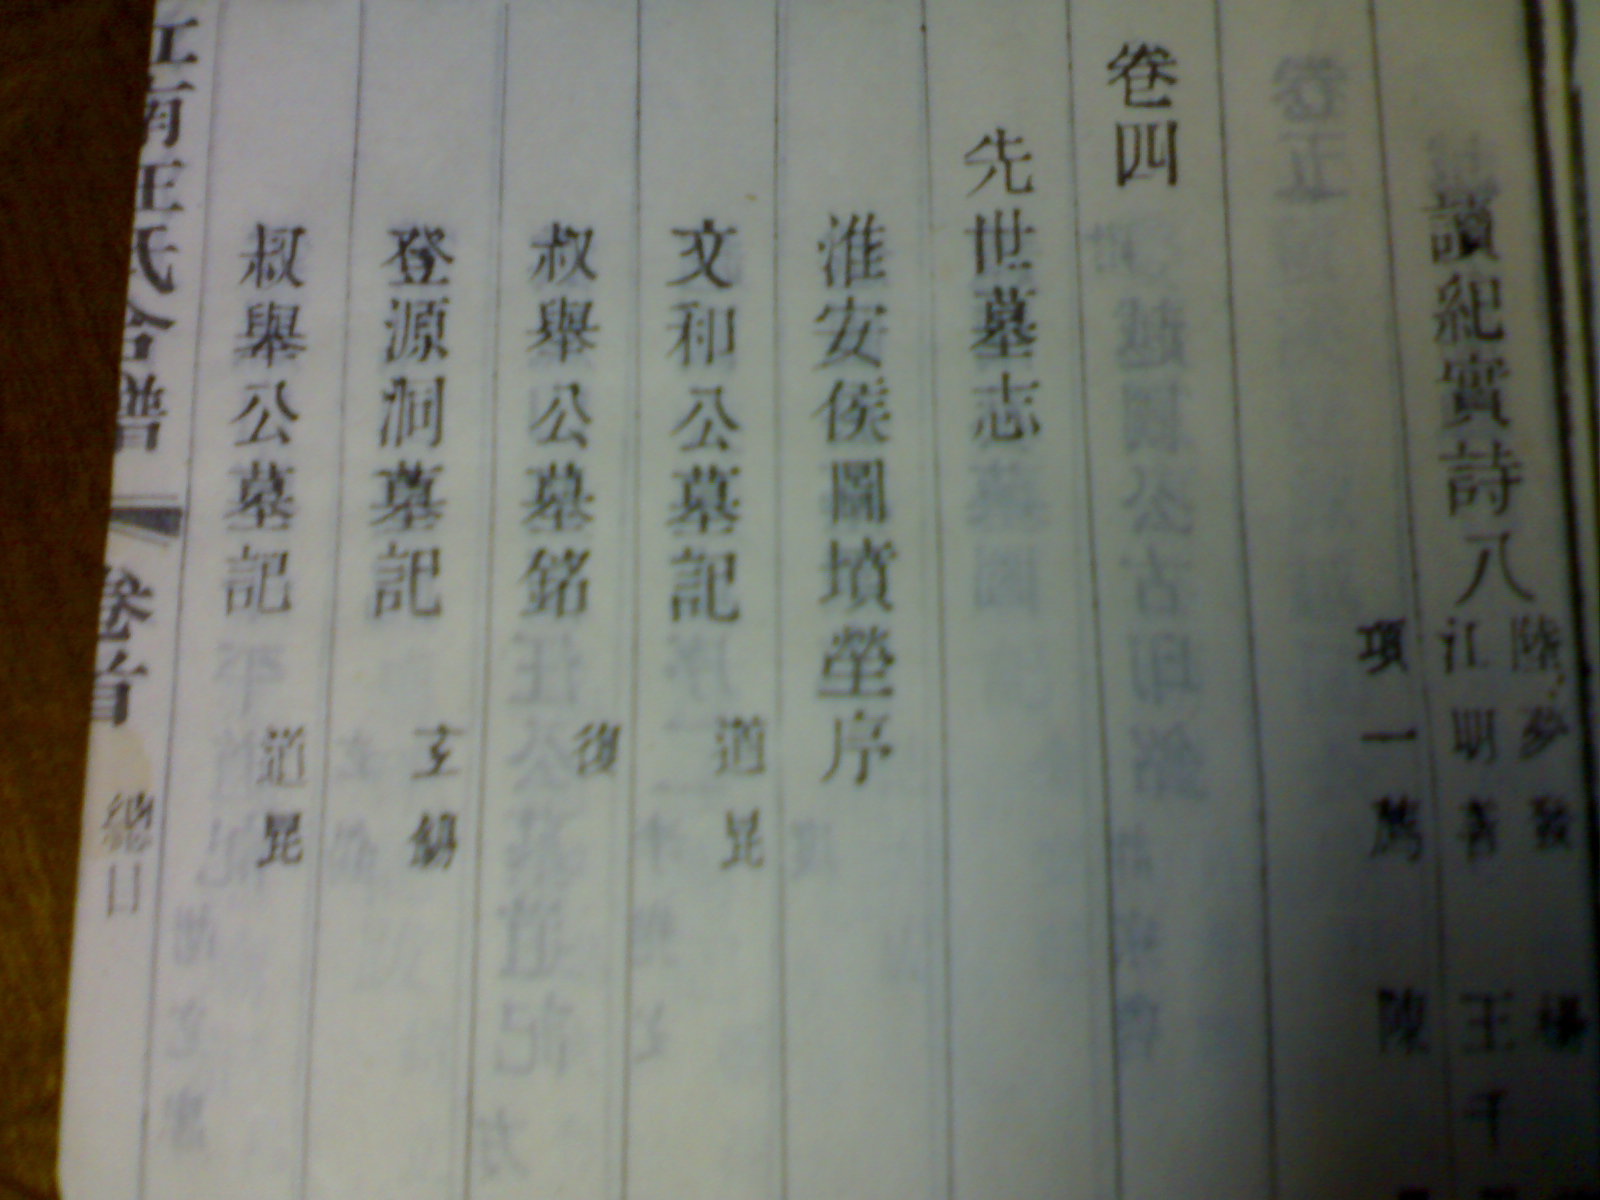 讀紀實詩八
陸夢發
江明善 王千
項一鶚 陳
卷四
先世墓志
淮安侯圖墳塋序
文和公墓記 道昆
叔舉公墓銘 復
登源洞墓記 玄錫
叔舉公墓記 道昆
江南汪氏合譜 卷首 總目